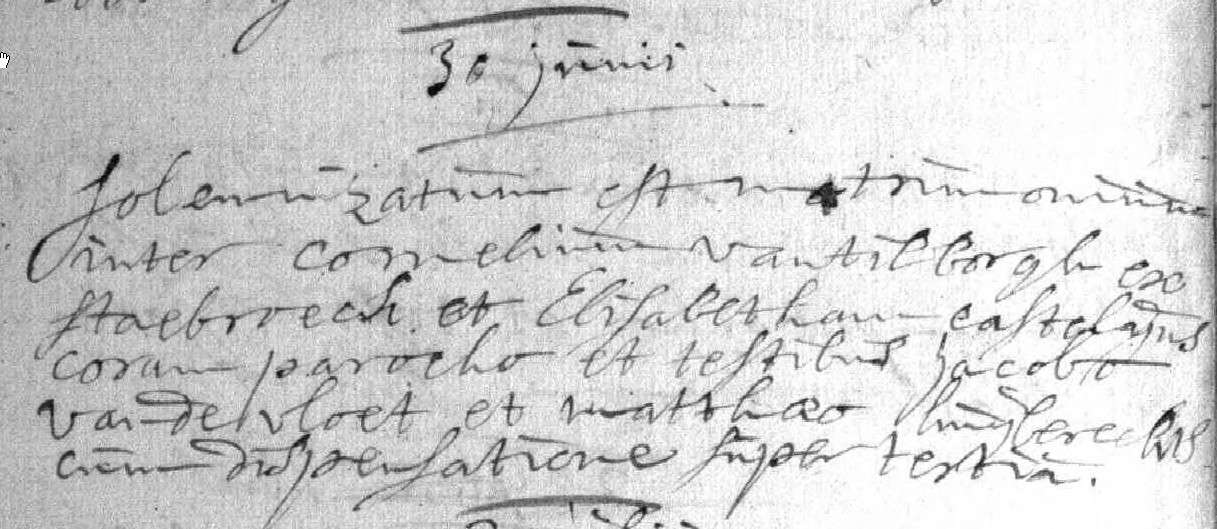 30 junii
Solemnizatum est matrimonium
inter cornelium vantilborgh ex
staebroeck et Elisabetham castelajns
coram parocho et testibus jacobo
vandevloet et matthæo
cum dispensatione super tertia.